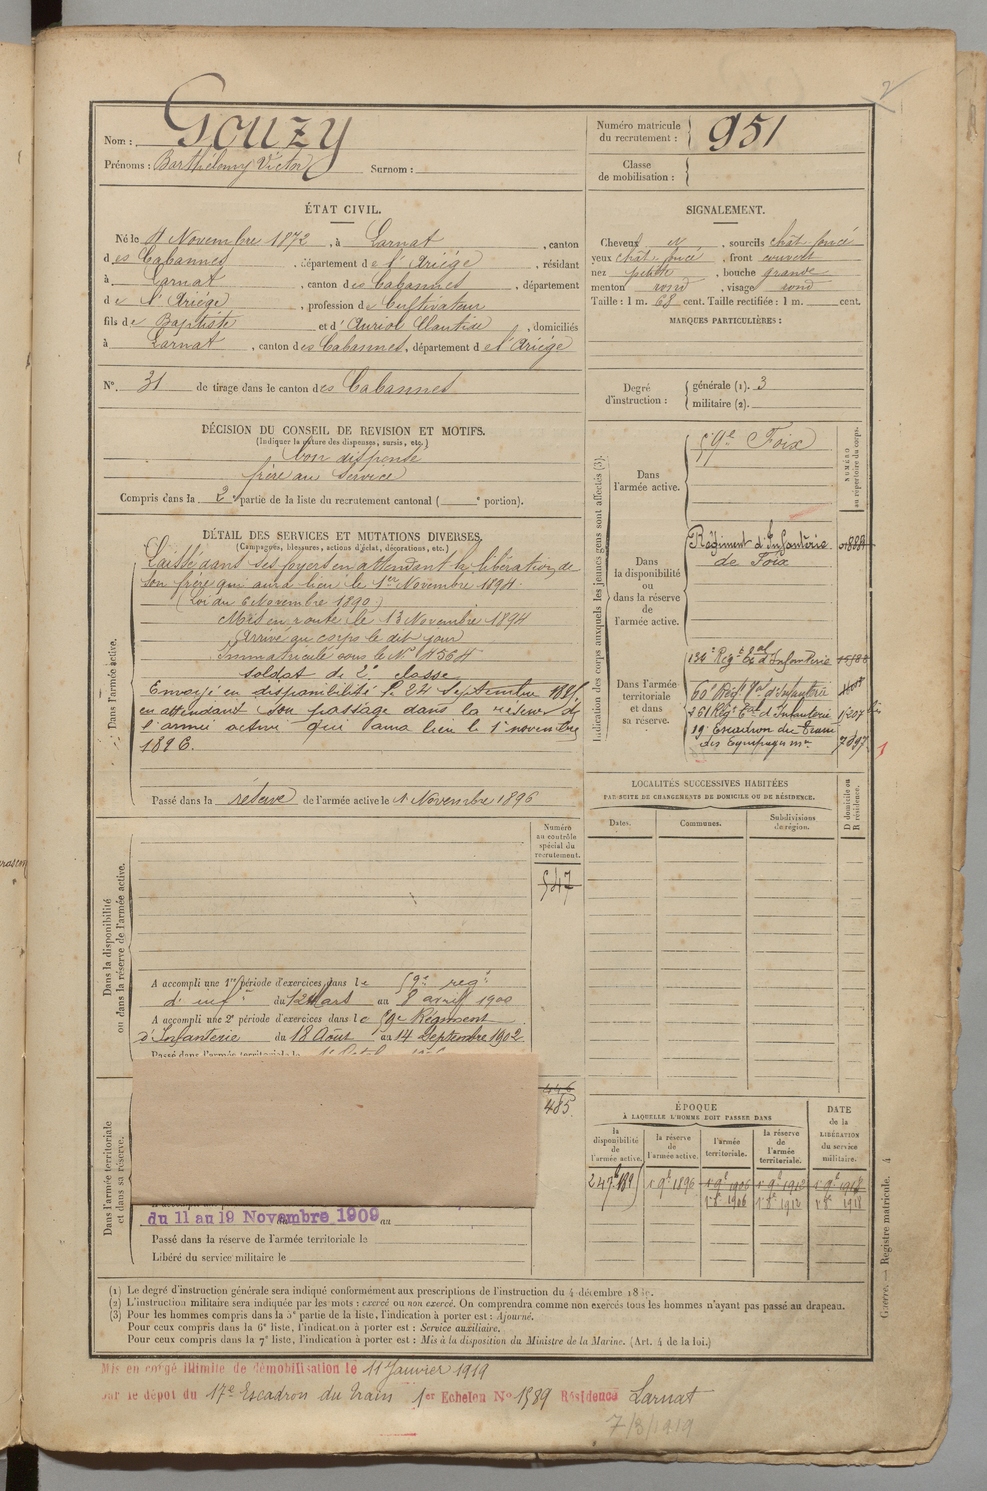 Nom : Gouzy
Prénoms : Barthélemy Victor Surnom :
Numéro matricule du recrutement : 951
Classe de mobilisation :
ÉTAT CIVIL.
Né le Novembre 1872, à Larnat, canton
des Cabannes, département de l'Ariège, résidant
à Larnat, canton des Cabannes, département
de l'Ariège, profession de Cultivateur
fils de Baptiste et d'Auriol Clantide, domiciliés
à Larnat, canton des Cabannes, département de l'Ariège
N°. 31 de tirage dans le canton des Cabannes
SIGNALEMENT.
Cheveux N, sourcils chât. foncé
yeux chât. foncé, front couvert
nez petite, bouche grande
menton rond, visage rond
Taille : 1 m. 68 cent. Taille rectifiée : 1 m. cent.
MARQUES PARTICULIÈRES :
Degré d'instruction :
générale (1). 3
militaire (2).
DÉCISION DU CONSEIL DE REVISION ET MOTIFS.
(Indiquer la nature des dispenses, sursis, etc.)
bon dispensé
frère au service
Compris dans la 2e partie de la liste du recrutement cantonal ( e portion).
DÉTAIL DES SERVICES ET MUTATIONS DIVERSES.
(Campagnes, blessures, actions d'éclat, décorations, etc.)
Dans l'armée active.
Laissé dans ses foyers en attendant la libération de
son frère qui aura lieu le 1er Novembre 1894.
(Loi du 6 Novembre 1890)
Mis en route le 13 Novembre 1894
Arrivé au corps le dit jour
Immatriculé sous le N° 4564
soldat de 2e classe
Envoyé en disponibilité le 24 Septembre 1895
en attendant son passage dans la réserve de
l'armée active qui aura lieu le 1er novembre
1896.
Passé dans la réserve de l'armée active le 1 Novembre 1896
Indication des corps auxquels les jeunes gens sont affectés (3).
NUMÉRO au répertoire du corps.
Dans l'armée active.
59e Foix
Dans la disponibilité ou dans la réserve de l'armée active.
Régiment d'Infanterie
de Foix
Dans l'armée territoriale et dans sa réserve.
134e Rég. Tal d'Infanterie
60e Régt Tal d'Infanterie
261 Régt Tal d'Infanterie
19e Escadron du Train
des Equipages Mre 7897
LOCALITÉS SUCCESSIVES HABITÉES
PAR SUITE DE CHANGEMENTS DE DOMICILE OU DE RÉSIDENCE.
Dates. Communes. Subdivisions de région.
D domicile ou R résidence.
Numéro au contrôle spécial du recrutement.
547
Dans la disponibilité ou dans la réserve de l'armée active.
A accompli une 1re période d'exercices dans le 59e régt
d'infie du 12 Mars au 8 avril 1900
A accompli une 2e période d'exercices dans le 59e Régiment
d'Infanterie du 18 Août au 14 Septembre 1902
Passé dans l'armée territoriale le
Dans l'armée territoriale et dans sa réserve.
446
485
du 11 au 19 Novembre 1909 au
Passé dans la réserve de l'armée territoriale le
Libéré du service militaire le
ÉPOQUE
À LAQUELLE L'HOMME DOIT PASSER DANS
la disponibilité de l'armée active.
la réserve de l'armée active.
l'armée territoriale.
la réserve de l'armée territoriale.
DATE de la LIBÉRATION du service militaire.
1 9e 1896 1 9e 1906 1 9e 1912 1 9e 1918
1 8e 1906 1 8e 1912 1 8e 1918
(1) Le degré d'instruction générale sera indiqué conformément aux prescriptions de l'instruction du 4 décembre
(2) L'instruction militaire sera indiquée par les mots : exercé ou non exercé. On comprendra comme non exercés tous les hommes n'ayant pas passé au drapeau.
(3) Pour les hommes compris dans la 5e partie de la liste, l'indication à porter est : Ajourné.
Pour ceux compris dans la 6e liste, l'indication à porter est : Service auxiliaire.
Pour ceux compris dans la 7e liste, l'indication à porter est : Mis à la disposition du Ministre de la Marine. (Art. 4 de la loi.)
Guerre. — Registre matricule. 4
Mis en congé illimité de démobilisation le 11 Janvier 1919
par le dépôt du 17e Escadron du train 1er Echelon N° 1589 Résidence Larnat
7/8/1919